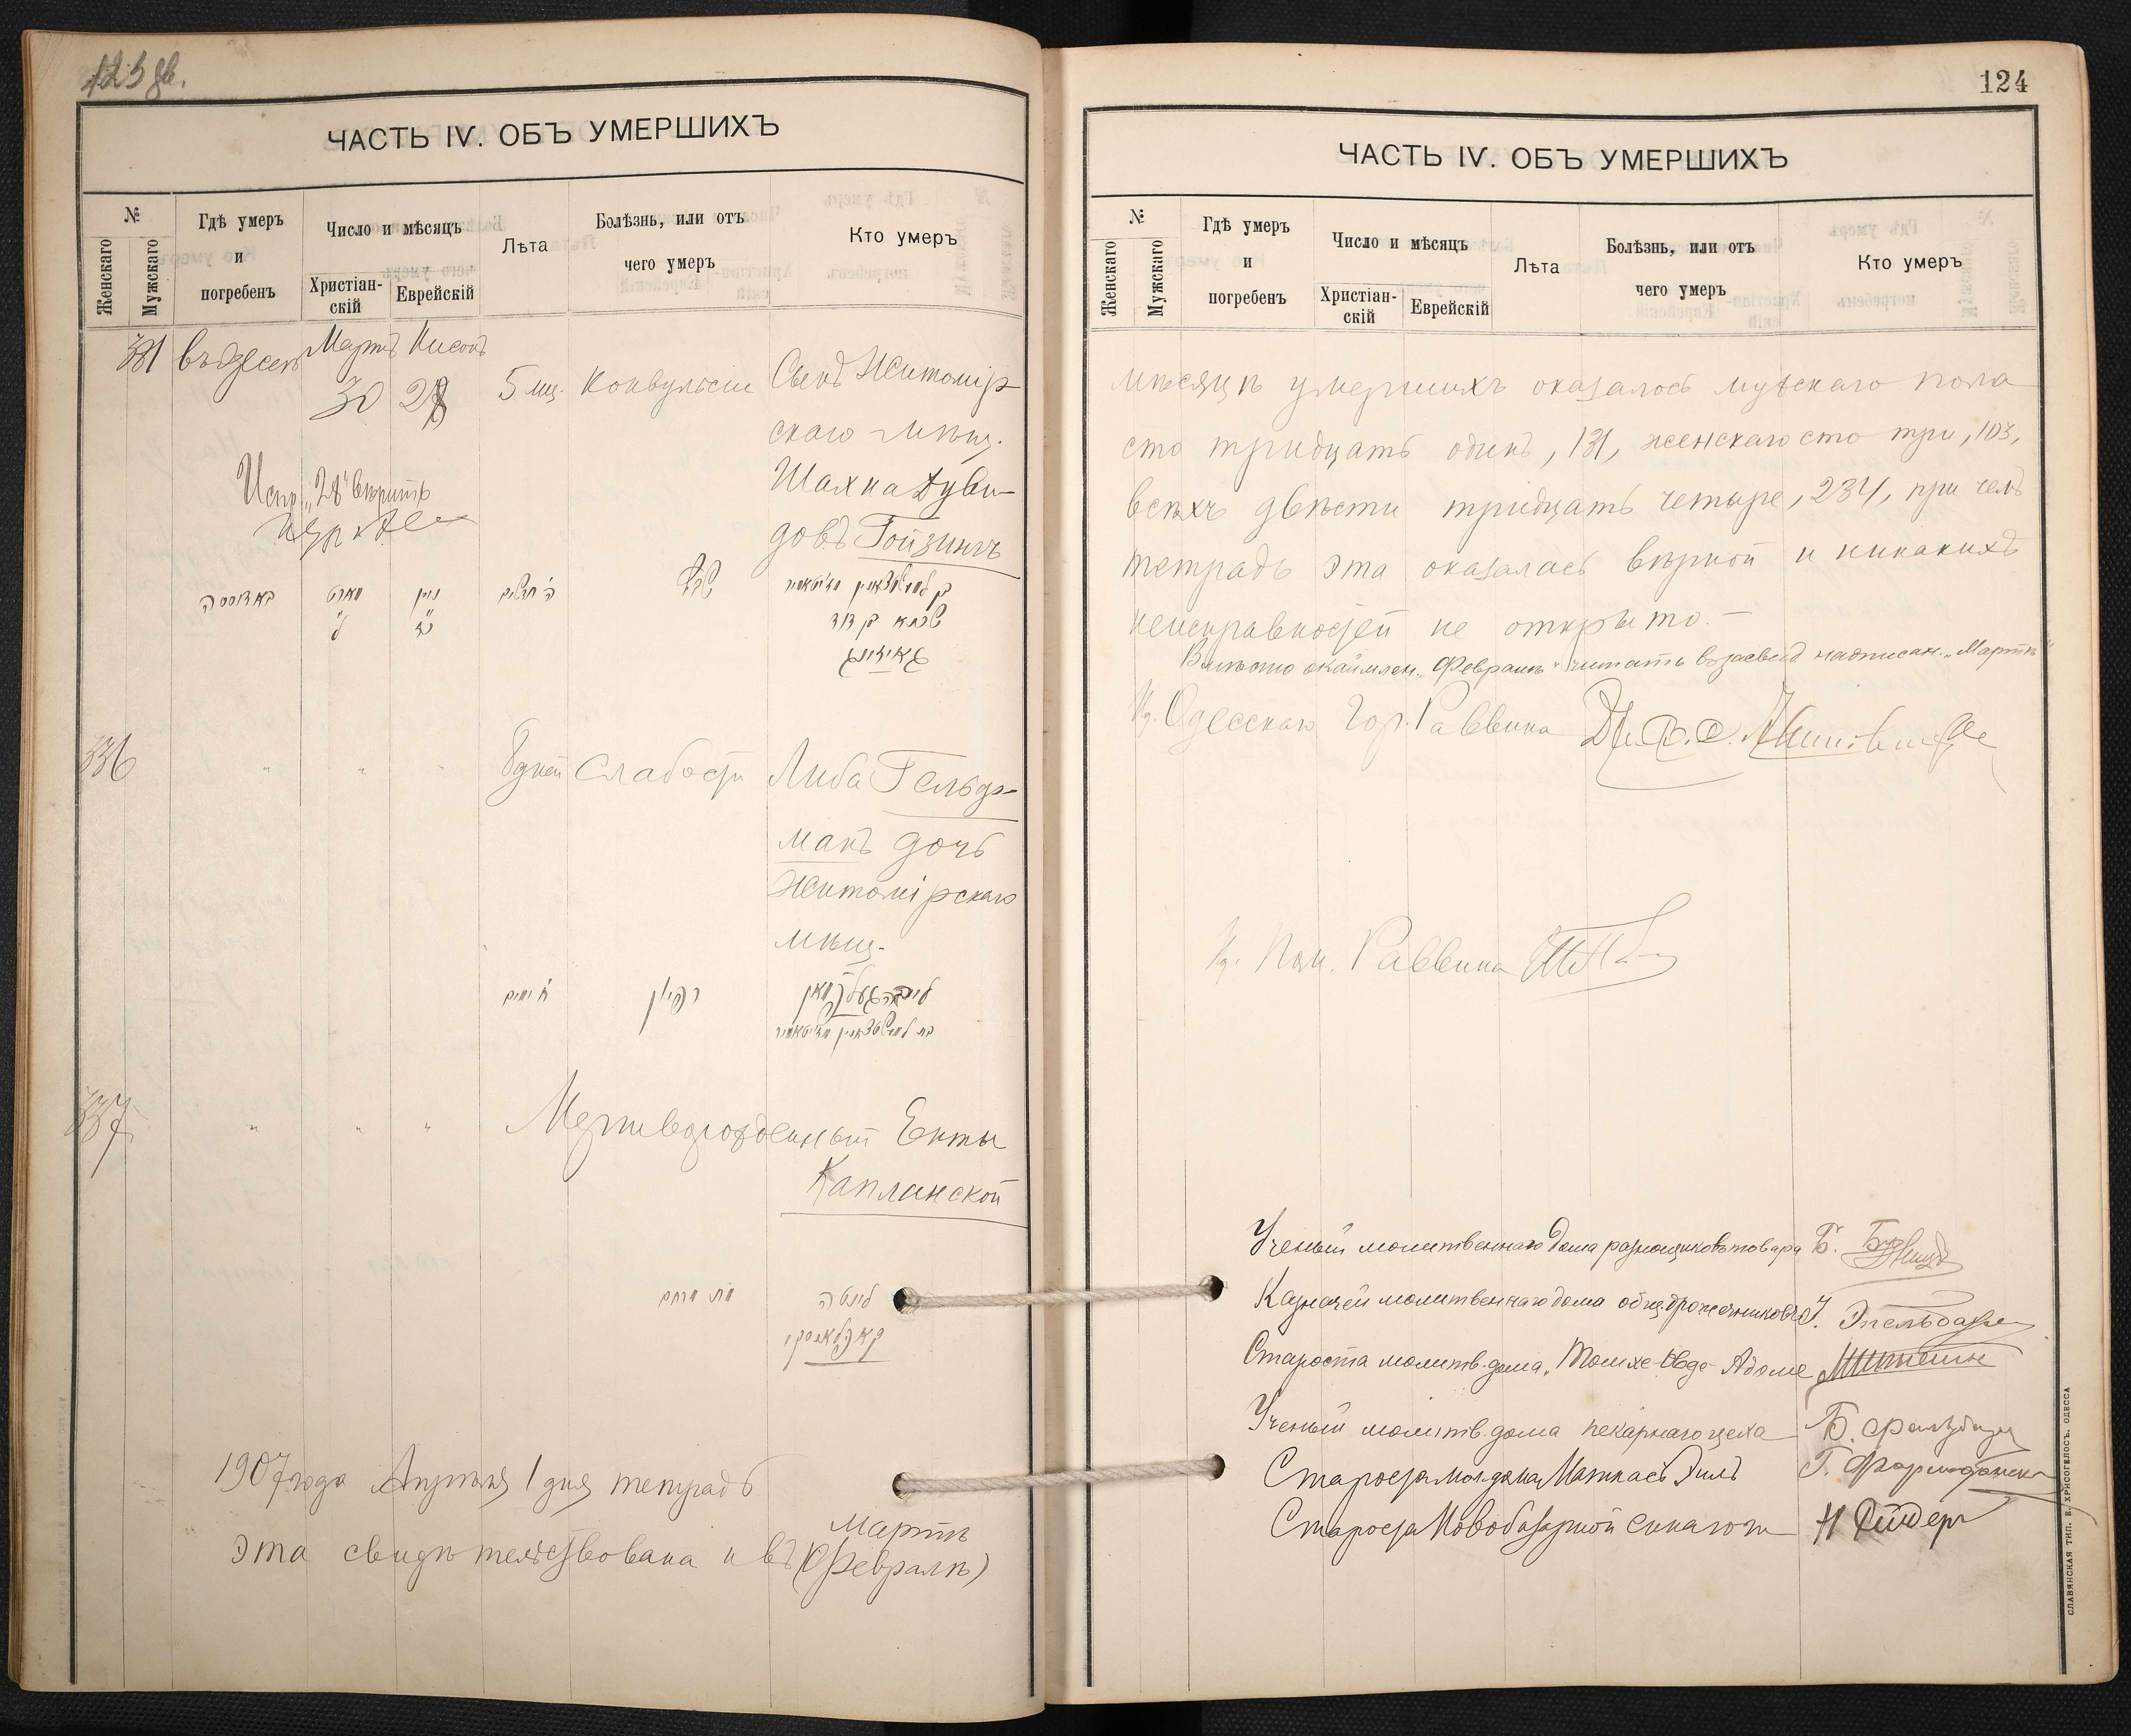 123 об.
ЧАСТЬ IV. ОБЪ УМЕРШИХЪ
№
Женскаго
Мужскаго
Гдѣ умеръ и погребенъ
Число и мѣсяцъ
Христіан-скій
Еврейскій
Лѣта
Болѣзнь, или отъ чего умеръ
Кто умеръ
381 въ Одессѣ Мартъ Нисонъ
30 28 5 мц. Конвульсіи Сынъ Житомір-
скаго мѣщ.
Шахна Дуви-
довъ Гойзингъ
Испр. „28" вѣрить
באדעססה מארט ניסן ה׳ חדשים
ל׳ כ״ח
שכנא בן דוד
גאיזינג
336 " " " 8 дней Слабости Либа Гельдъ-
манъ дочь
Житомірскаго
мѣщ.
ח׳ ימים רפיון
337 " " " Мертворожденный Енты
Капланской
יענטה
קאפלאנסקי
1907 года Апрѣля 1 дня тетрадь
Мартѣ
эта свидѣтельствована и въ (Февралѣ)
124
ЧАСТЬ IV. ОБЪ УМЕРШИХЪ
№
Женскаго
Мужскаго
Гдѣ умеръ и погребенъ
Число и мѣсяцъ
Христіан-скій
Еврейскій
Лѣта
Болѣзнь, или отъ чего умеръ
Кто умеръ
мѣсяцѣ умершихъ оказалось мужскаго пола
сто тридцать одинъ, 131, женскаго сто три, 103,
всѣхъ двѣсти тридцать четыре, 234, при чемъ
тетрадь эта оказалась вѣрной и никакихъ
неисправностей не открыто. —
Вмѣсто окаймлен. „Февралѣ" читать надписан. „Мартѣ"
И. д. Одесскаго Гор. Раввина
И. д. Пом. Раввина
Ученый молитвеннаго дома разнощиковъ товара Б.
Казначей молитвеннаго дома общ. дрожечниковъ
Староста молитв. дома
Ученый молитв. дома пекарнаго цеха Б.
Староста мол. дома Г.
Староста Новобазарной синагоги Н
СЛАВЯНСКАЯ ТИП. Е. ХРИСОГЕЛОСЪ. ОДЕССА